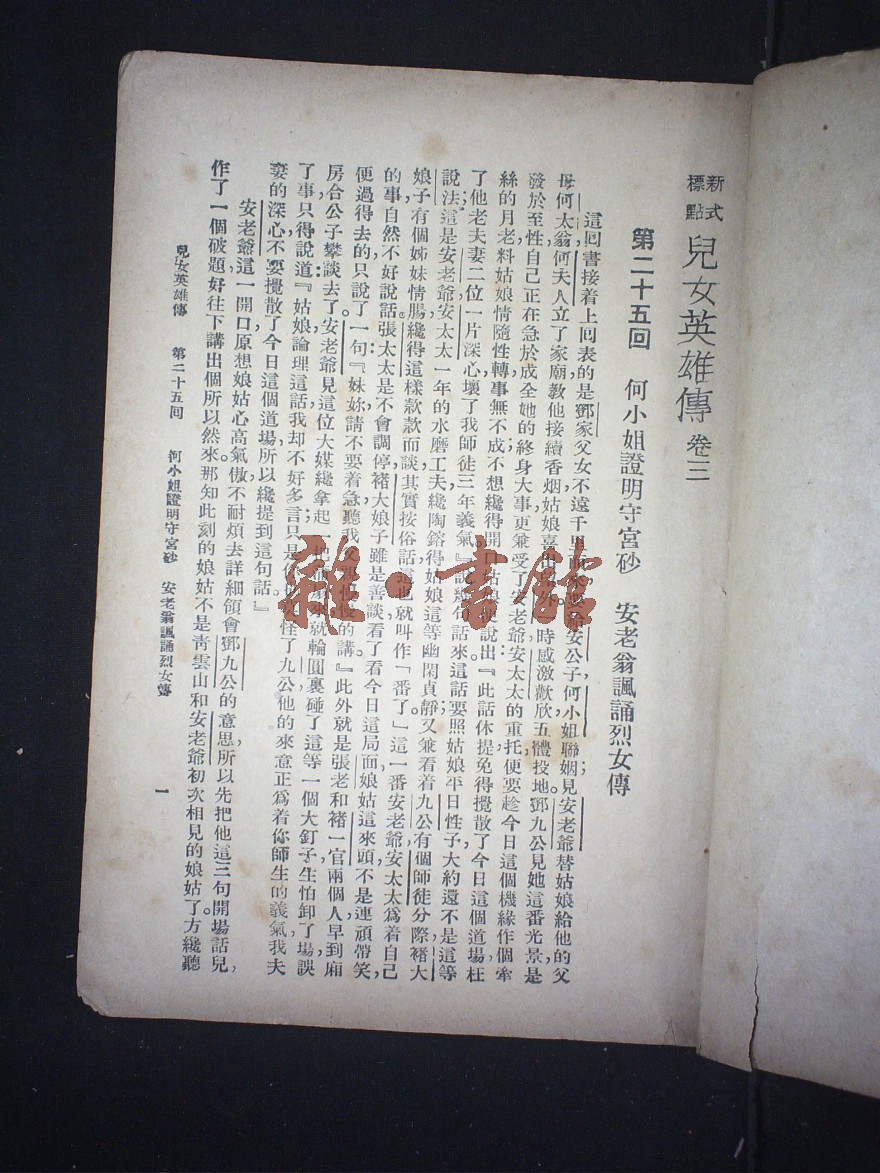 新式標點 兒女英雄傳 卷三
第二十五回　何小姐證明守宮砂　安老翁諷誦烈女傳
這回書接着上回表的是鄧家父女不遠千里而來要給安公子何小姐聯姻見安老爺替姑娘給他的父
母何太翁何夫人立了家廟教他接續香烟姑娘喜出望外一時感激歡欣五體投地鄧九公見她這番光景是
發於至性自己正在急於成全她的終身大事更兼受了安老爺安太太的重托便要趁今日這個機緣作個牽
絲的月老料姑娘情隨性轉事無不成不想纔得開口姑娘便說出：『此話休提免得攪散了今日這個道場枉
了他老夫妻二位一片深心壞了我師徒三年義氣』說這句話來這話要照姑娘平日性子大約還不是這等
說法；這是安老爺安太太一年的水磨工夫纔陶鎔得姑娘這等幽閑貞靜；又兼看着九公有個師徒分際褚大
娘子有個姊妹情腸纔得這樣款款而談其實按俗話這也就叫作『番了』這一番安老爺安太太爲着自己
的事自然不好說話張太太是不會調停褚大娘子雖是善談看了看今日這局面娘姑這來頭不是連頑帶笑，
便過得去的只說了一句：『妹妳請不要着急聽我父親慢慢的講』此外就是張老和褚一官兩個人早到廂
房合公子攀談去了。安老爺見這位大媒纔拿起一把蒲扇來就輪圓裏碰了這等一個大釘子生怕卸了場誤
了事只得說道：『姑娘論理這話我却不好多言；只是你也莫怪了九公他的來意正爲着你師生的義氣我夫
妻的深心不要攪散了今日這個道場所以纔提到這句話』
安老爺這一開口原想娘姑心高氣傲不耐煩去詳細領會鄧九公的意思所以先把他這三句開場話兒，
作了一個破題好往下講出個所以然來那知此刻的娘姑不是靑雲山和安老爺初次相見的娘姑了。方纔聽
兒女英雄傳　第二十五回　何小姐證明守宮砂　安老翁諷誦烈女傳　一
雜·書館